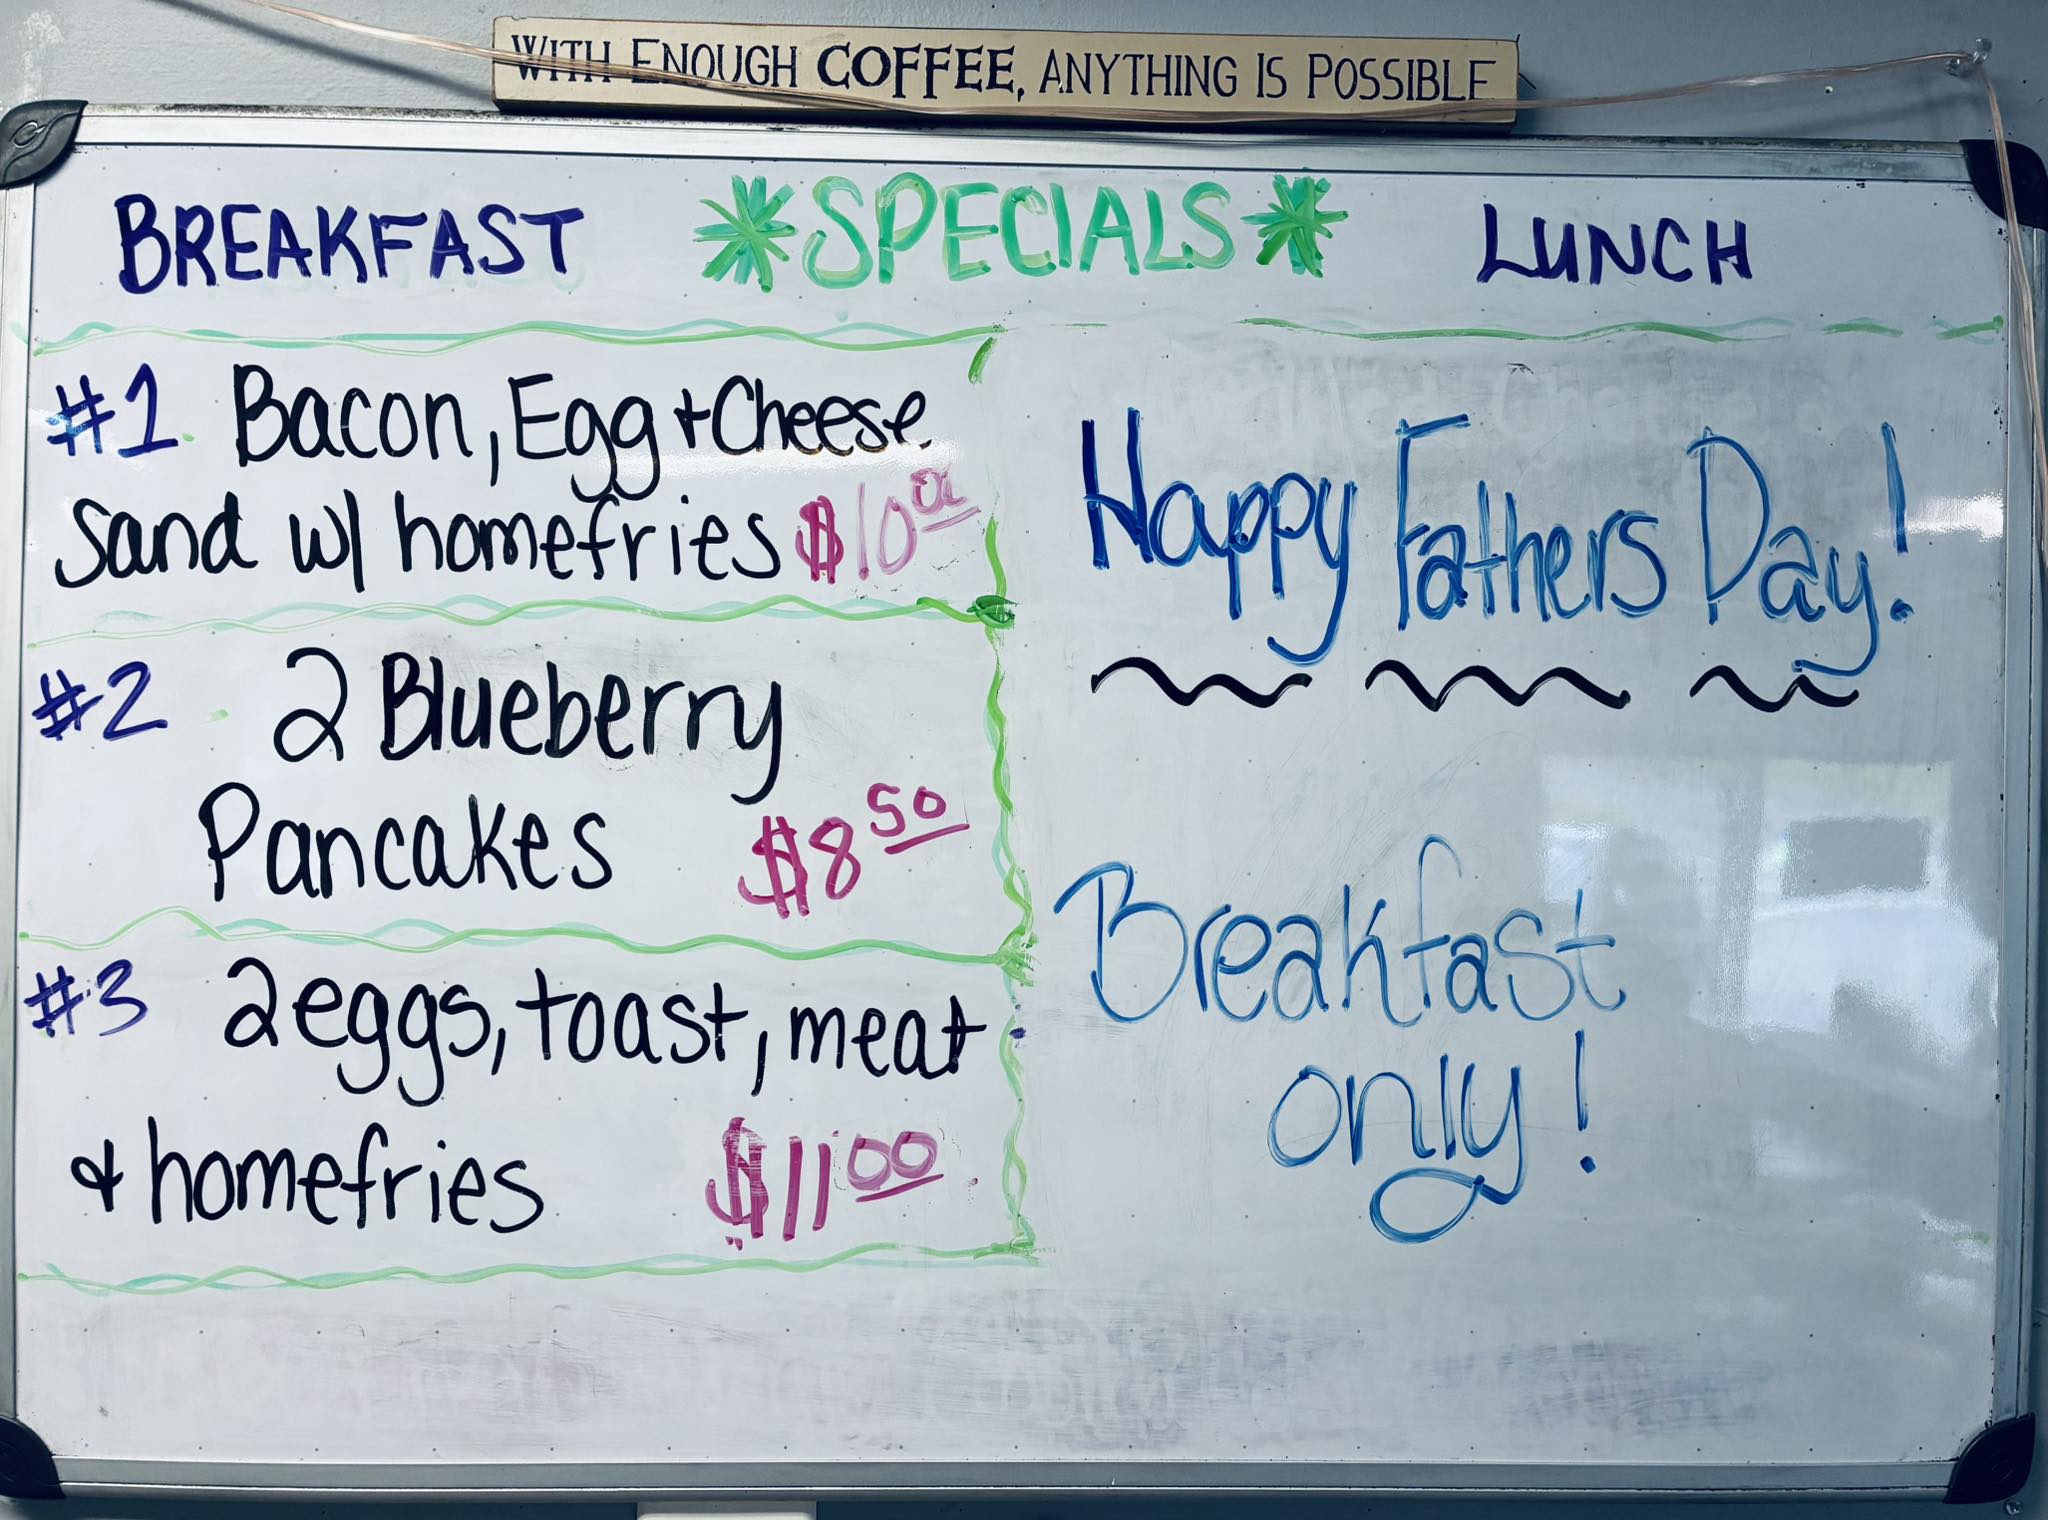 WITH ENOUGH COFFEE, ANYTHING IS POSSIBLE
BREAKFAST
*SPECIALS*
LUNCH
#1 Bacon, Egg + Cheese
Sand w/ homefries $10.00
#2 2 Blueberry
Pancakes $8.50
#3 2 eggs, toast, meat
+ homefries $11.00
Happy Fathers Day!
Breakfast
only!